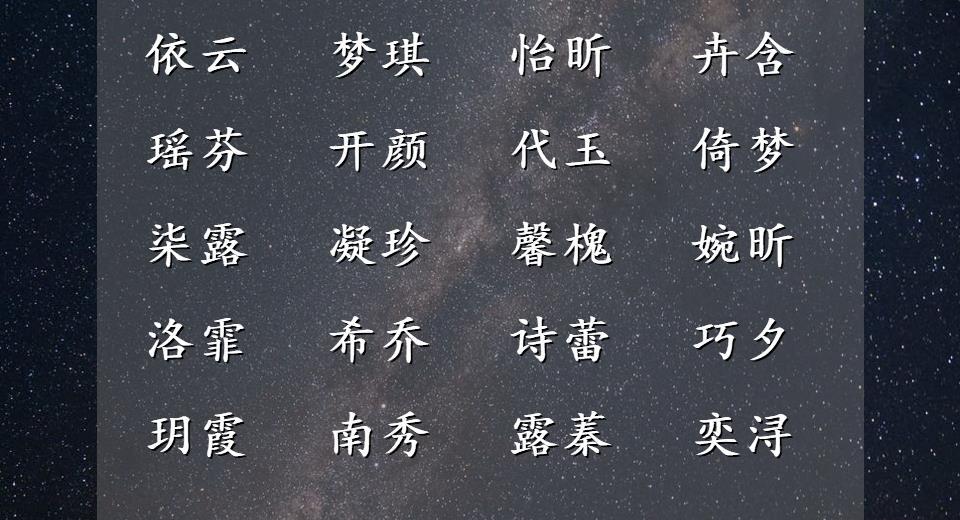 依云 梦琪 怡昕 卉含
瑶芬 开颜 代玉 倚梦
柒露 凝珍 馨槐 婉昕
洛霏 希乔 诗蕾 巧夕
玥霞 南秀 露蓁 奕浔